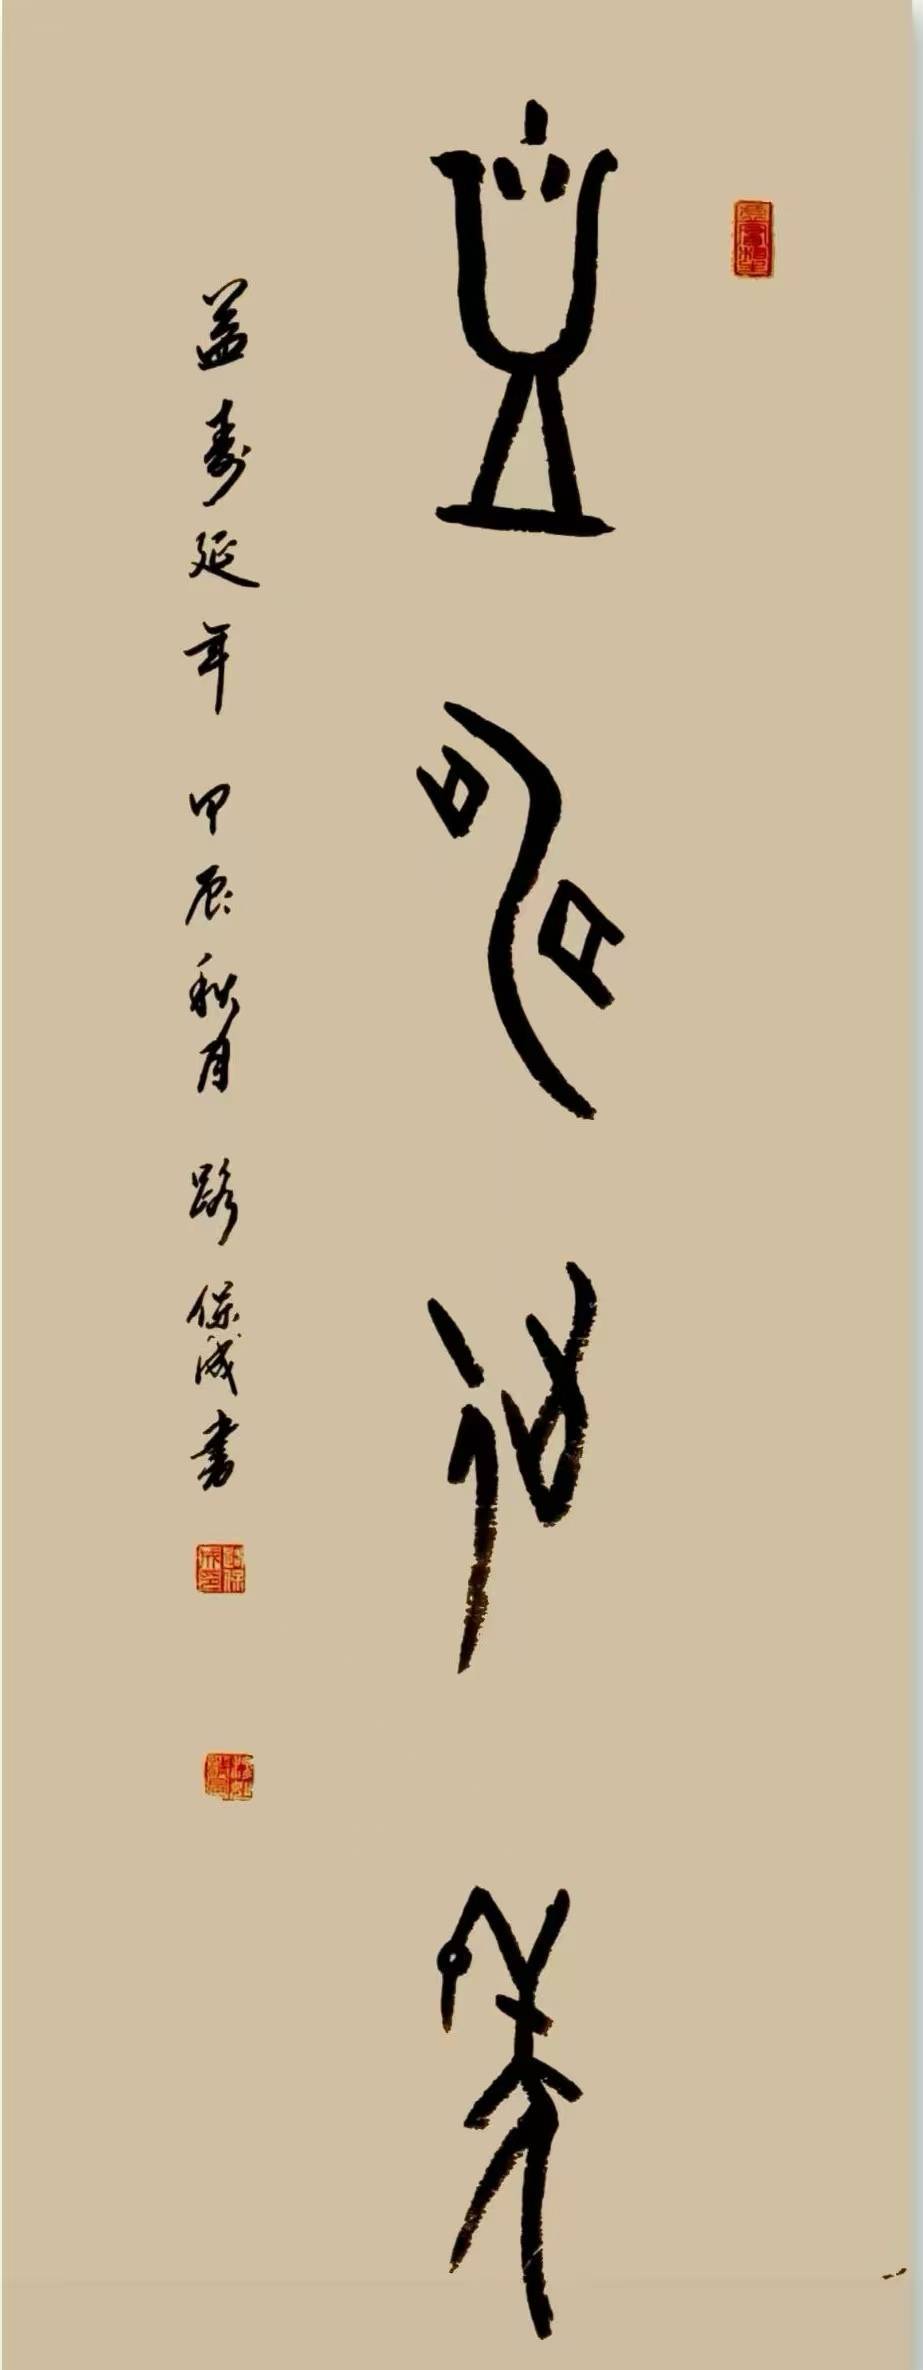 益壽延年
益寿延年 甲辰秋月 路保成書